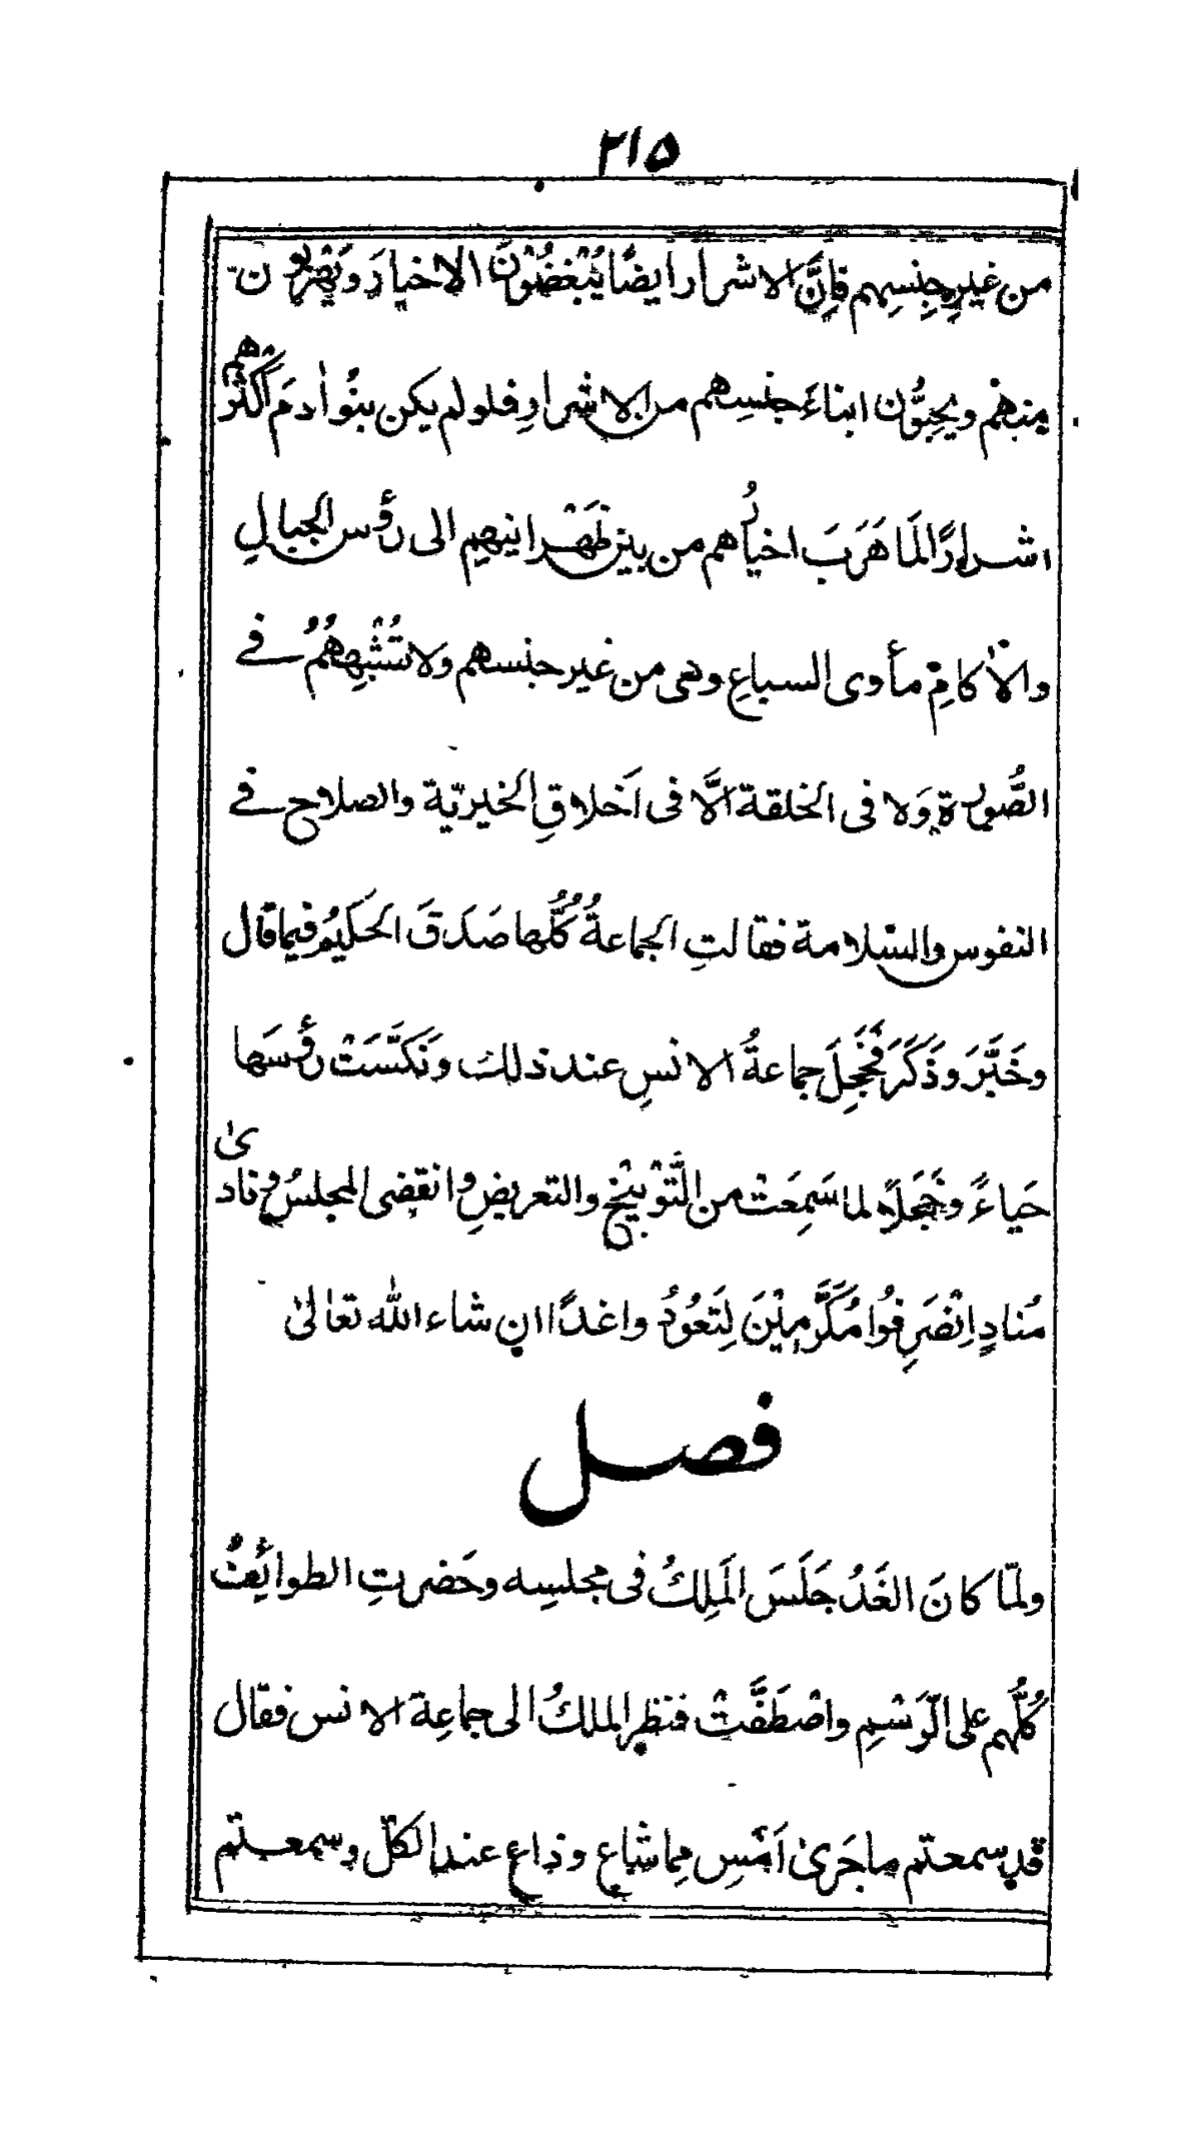 ٢١٥
من غيرِ جِنسِهم فَاِنَّ الاشرار ايضًا يُبْغضُوْنَ الاخيارَ ويَهْربُون
مِنهُم ويحِبُّون ابناءَ جنسِهم من الاشرارِ فلو لم يكن بنُو اٰدمَ اَكثرُهم
اشرارًا لَمَا هَرَبَ اخيارُهم من بين ظَهْرانيهِم الى رؤس الجبالِ
والاٰكامِ مأوى السباعِ وهى من غير جنسهم ولا تُشْبِهِهُمُ فے
الصُّورة وَلا فى الخلقة الَّا فى اَخلاقِ الخيريّة والصلاح فے
النفوس والسّلامة فقالتِ الجماعةُ كُلُّها صَدَقَ الحَكيمُ فيما قال
وخَبَّرَ وذَكَرَ فَخَجِلَ جماعةُ الانسِ عند ذلك ونَكَّسَتْ رؤسَها
حَياءً وخَجَلاً لما سَمِعَتْ من التَّوْبيْخِ والتعريضِ وانقضى المجلسُ ونادىٰ
مُنادٍ اِنْصَرِفُوا مُكَرَّمِيْنَ لِتَعُوْدُوا غدًا ان شاء الله تعالىٰ
فصل
ولمّا كانَ الغَدُ جَلَسَ المَلِكُ فى مجلسِه وحَضرتِ الطوائِفُ
كُلُّهم على الرَّسْمِ واصْطَفَّتْ فنظر الملكُ الى جماعِة الانس فقال
قد سمعتم ما جَرىٰ اَمْسِ مِما شاع وذاع عند الكلّ وسمعتم